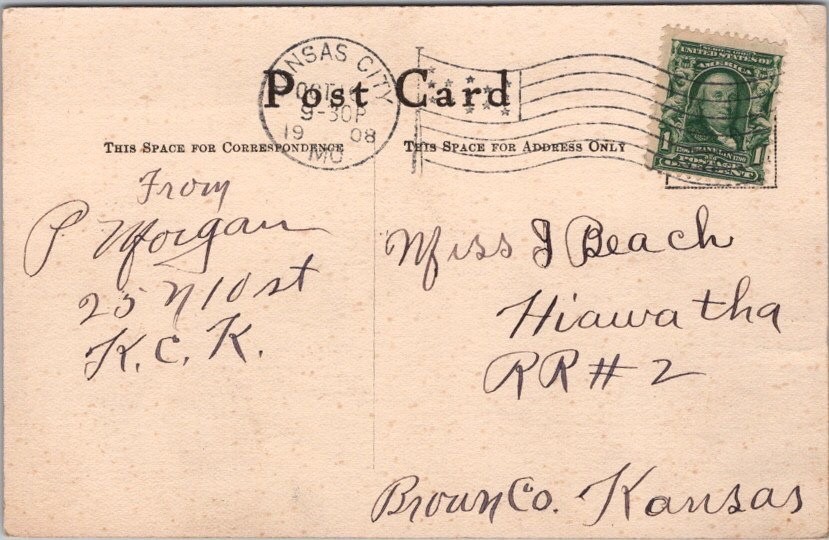 KANSAS CITY
OCT
9-30P
19 08
MO
Post Card
THIS SPACE FOR CORRESPONDENCE
THIS SPACE FOR ADDRESS ONLY
UNITED STATES OF
AMERICA
FRANKLIN
POSTAGE
1 ONE CENT 1
From
P Morgan
25 N 10 st
K. C. K.
Miss J Beach
Hiawatha
RR#2
Brown Co. Kansas